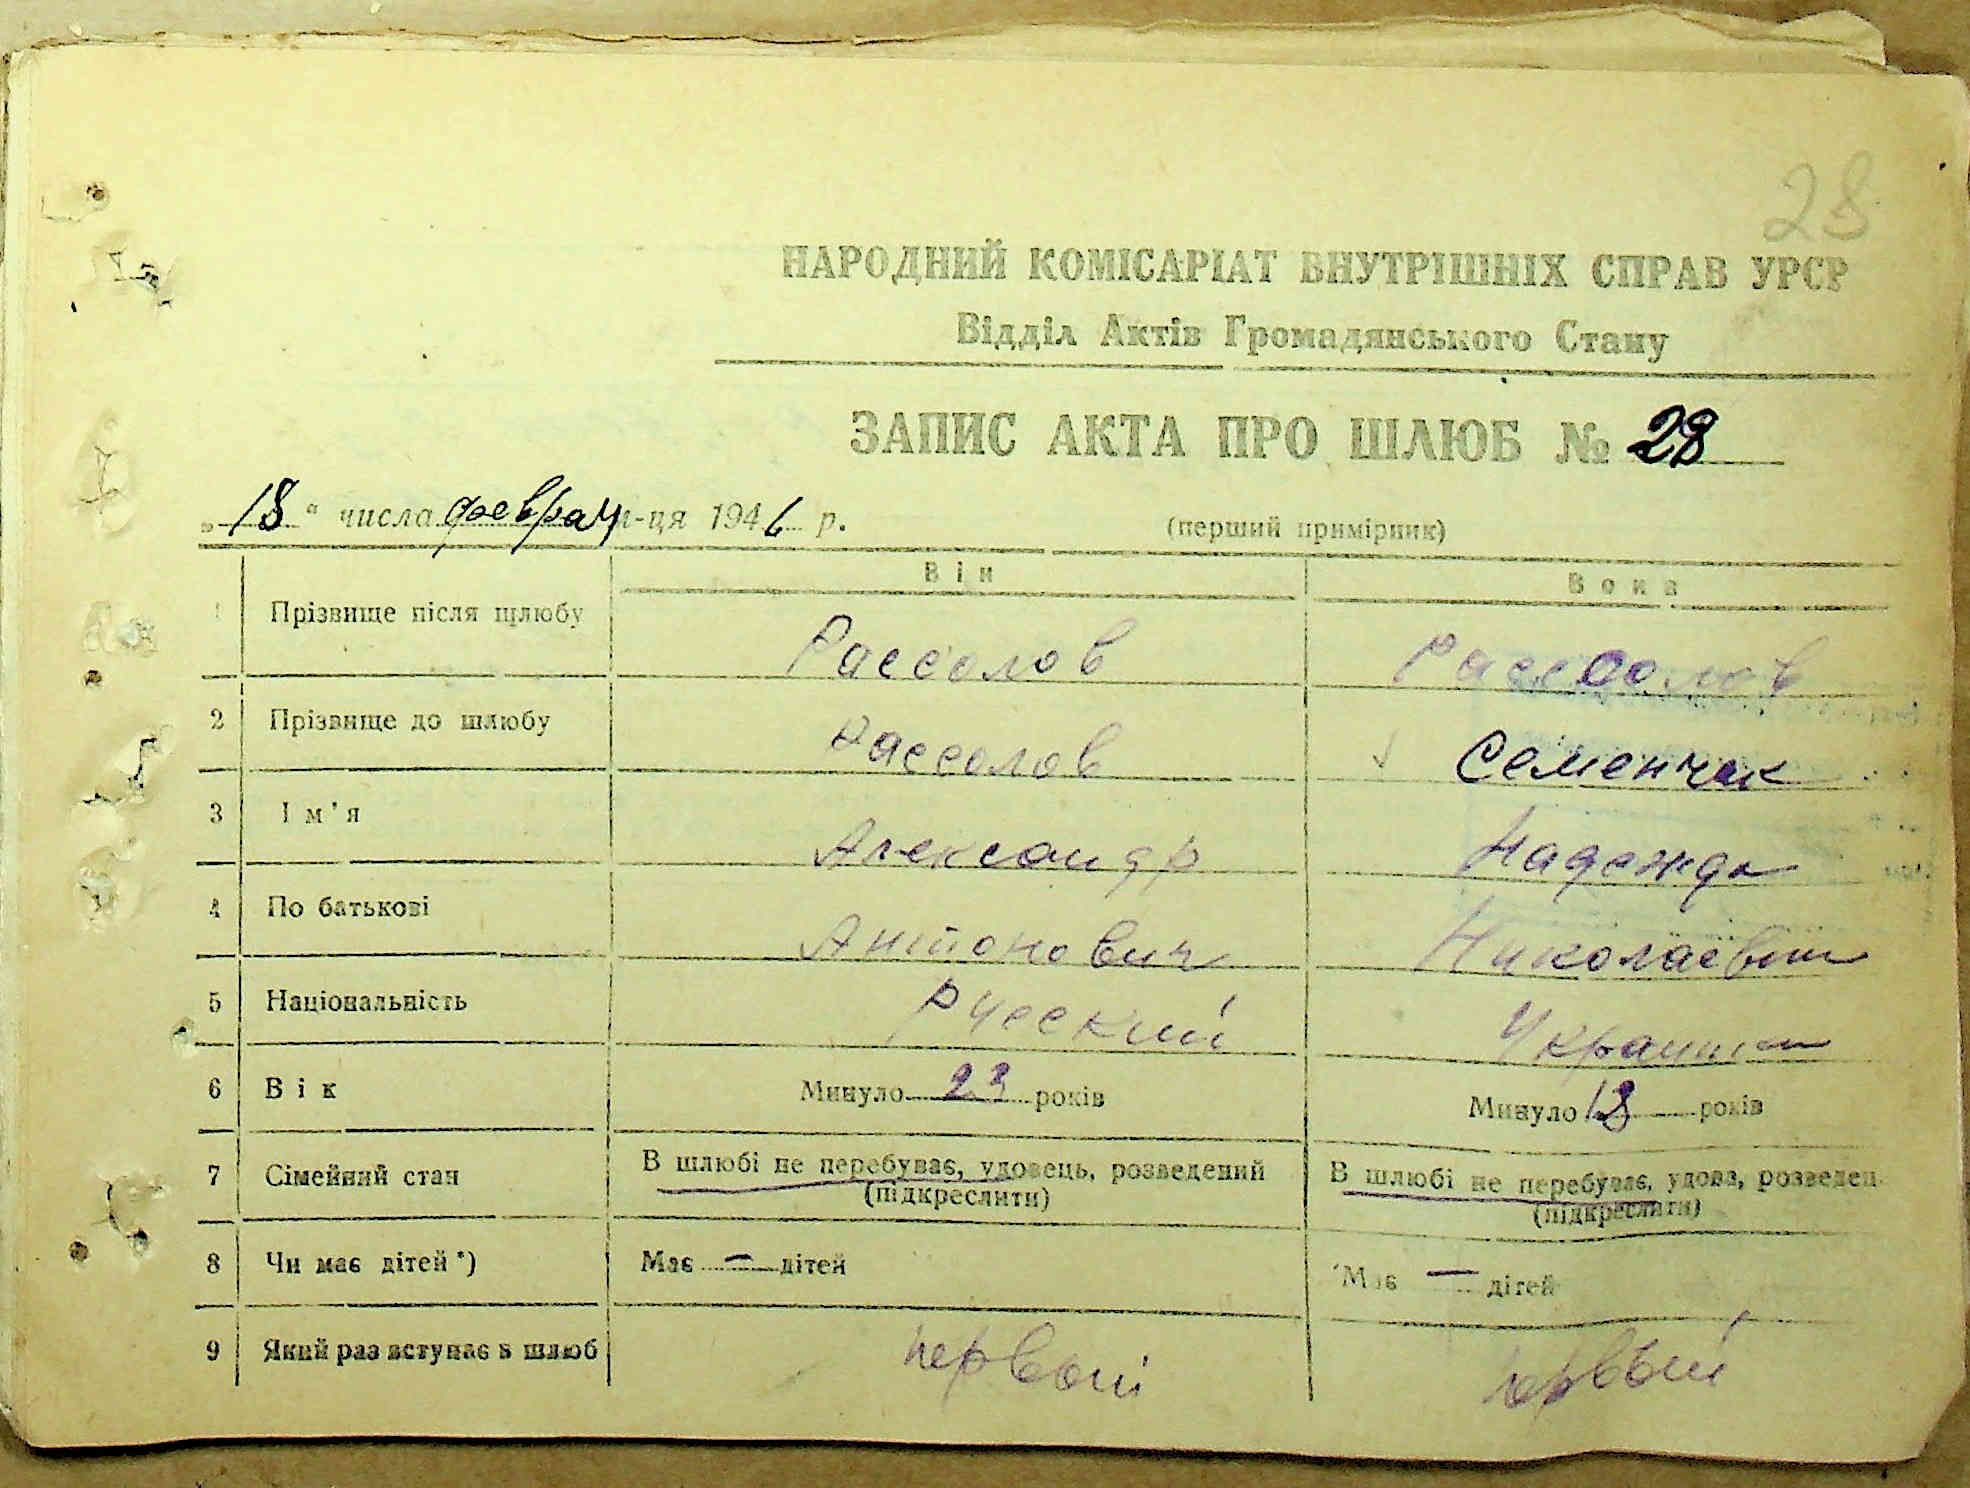 28
НАРОДНИЙ КОМІСАРІАТ ВНУТРІШНІХ СПРАВ УРСР
Відділ Актів Громадянського Стану
ЗАПИС АКТА ПРО ШЛЮБ № 28
„18“ числа феврал м-ця 1946 р. (перший примірник)
Він Вона
1 Прізвище після шлюбу Рассолов Рассолов
2 Прізвище до шлюбу Рассолов Семенчук
3 Ім'я Александр Надежда
4 По батькові Антонович Николаевна
5 Національність Русский Украинка
6 Вік Минуло 23 років Минуло 18 років
7 Сімейний стан В шлюбі не перебуває, удовець, розведений В шлюбі не перебуває, удова, розведен
(підкреслити) (підкреслити)
8 Чи має дітей *) Має – дітей Має – дітей
9 Який раз вступає в шлюб первый первый